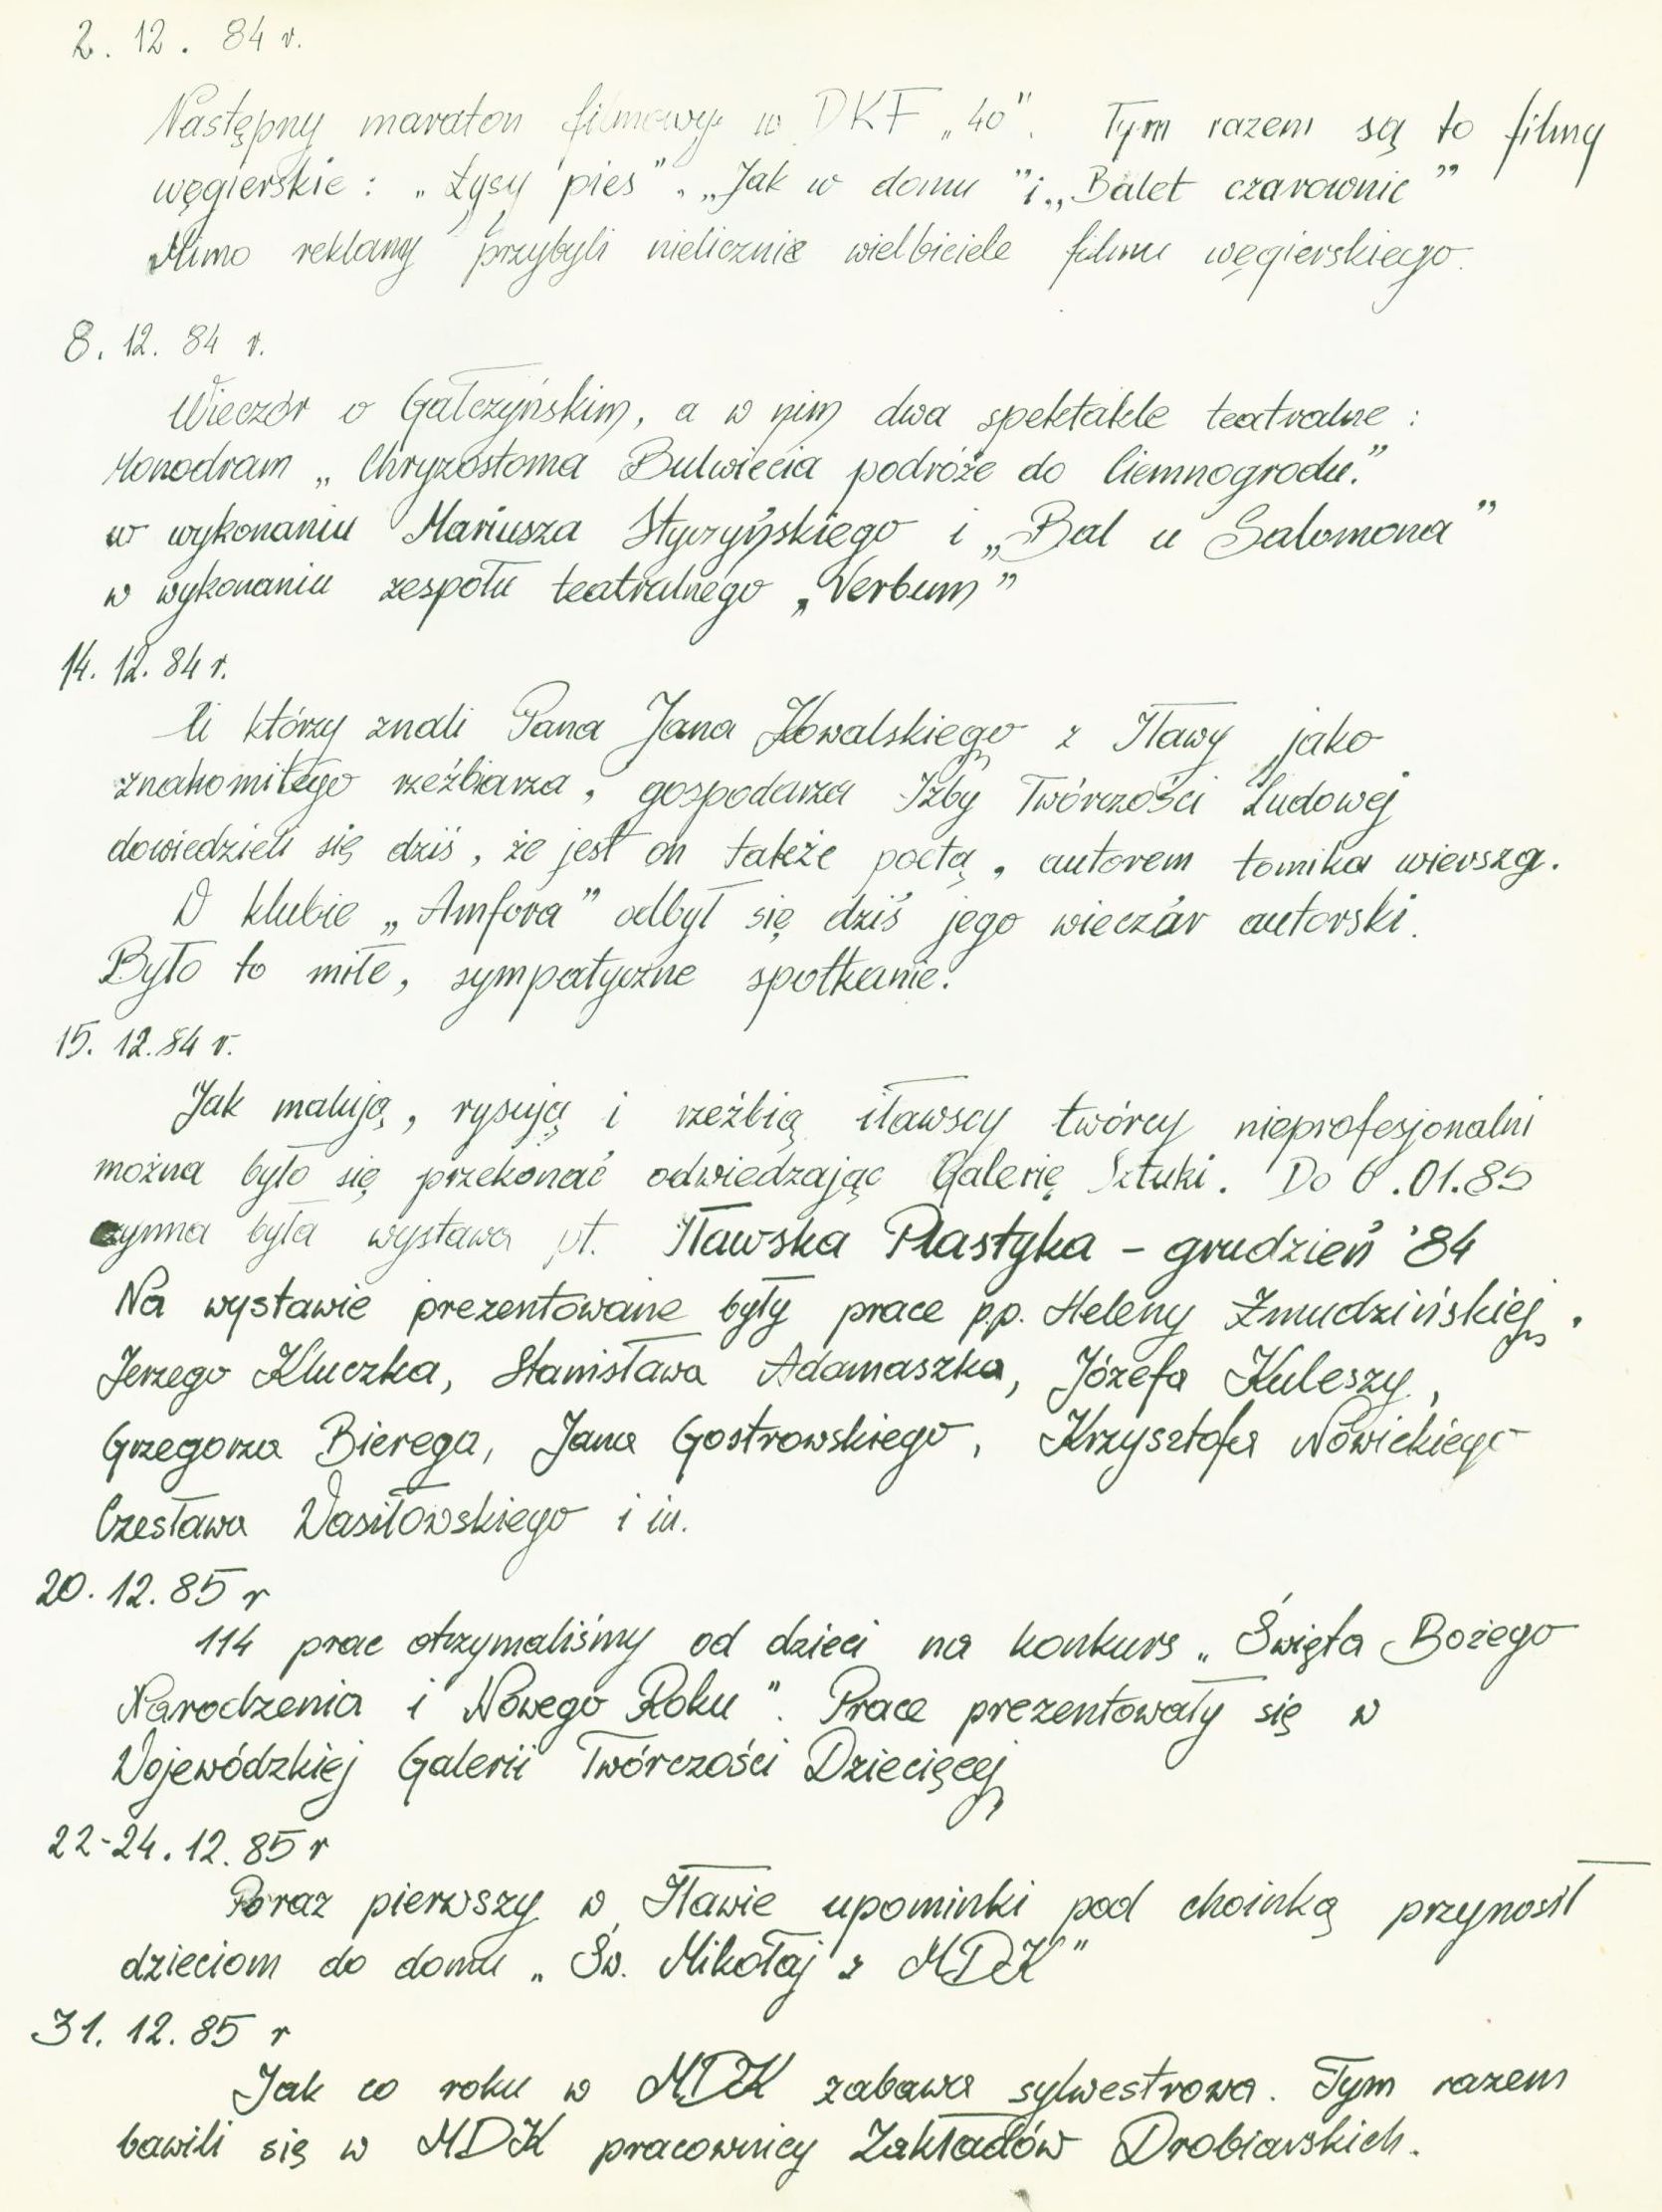 2. 12. 84 r.
Następny maraton filmowy w DKF „40". Tym razem są to filmy
węgierskie: „Łysy pies", „Jak w domu" i „Balet czarownic"
Mimo reklamy przybyli nielicznie wielbiciele filmu węgierskiego.
8. 12. 84 r.
Wieczór o Gałczyńskim, a w nim dwa spektakle teatralne:
Monodram „Chryzostoma Bulwiecia podróże do Ciemnogrodu."
w wykonaniu Mariusza Styczyńskiego i „Bal u Salomona"
w wykonaniu zespołu teatralnego „Verbum"
14. 12. 84 r.
Ci którzy znali Pana Jana Kowalskiego z Iławy jako
znakomitego rzeźbiarza, gospodarza Izby Twórczości Ludowej
dowiedzieli się dziś, że jest on także poetą, autorem tomika wierszy.
W klubie „Amfora" odbył się dziś jego wieczór autorski.
Było to miłe, sympatyczne spotkanie.
15. 12. 84 r.
Jak malują, rysują i rzeźbią iławscy twórcy nieprofesjonalni
można było się przekonać odwiedzając Galerię Sztuki. Do 6.01.85
czynna była wystawa pt. Iławska Plastyka – grudzień '84
Na wystawie prezentowane były prace p.p. Heleny Żmudzińskiej,
Jerzego Kluczka, Stanisława Adamaszka, Józefa Kuleszy,
Grzegorza Bierega, Jana Gostrowskiego, Krzysztofa Nowickiego
Czesława Wasiłowskiego i in.
20. 12. 85 r
114 prac otrzymaliśmy od dzieci na konkurs „Święta Bożego
Narodzenia i Nowego Roku". Prace prezentowały się w
Wojewódzkiej Galerii Twórczości Dziecięcej
22-24. 12. 85 r
Poraz pierwszy w Iławie upominki pod choinką przynosił
dzieciom do domu „Św. Mikołaj z MDK"
31. 12. 85 r
Jak co roku w MDK zabawa sylwestrowa. Tym razem
bawili się w MDK pracownicy Zakładów Drobiarskich.